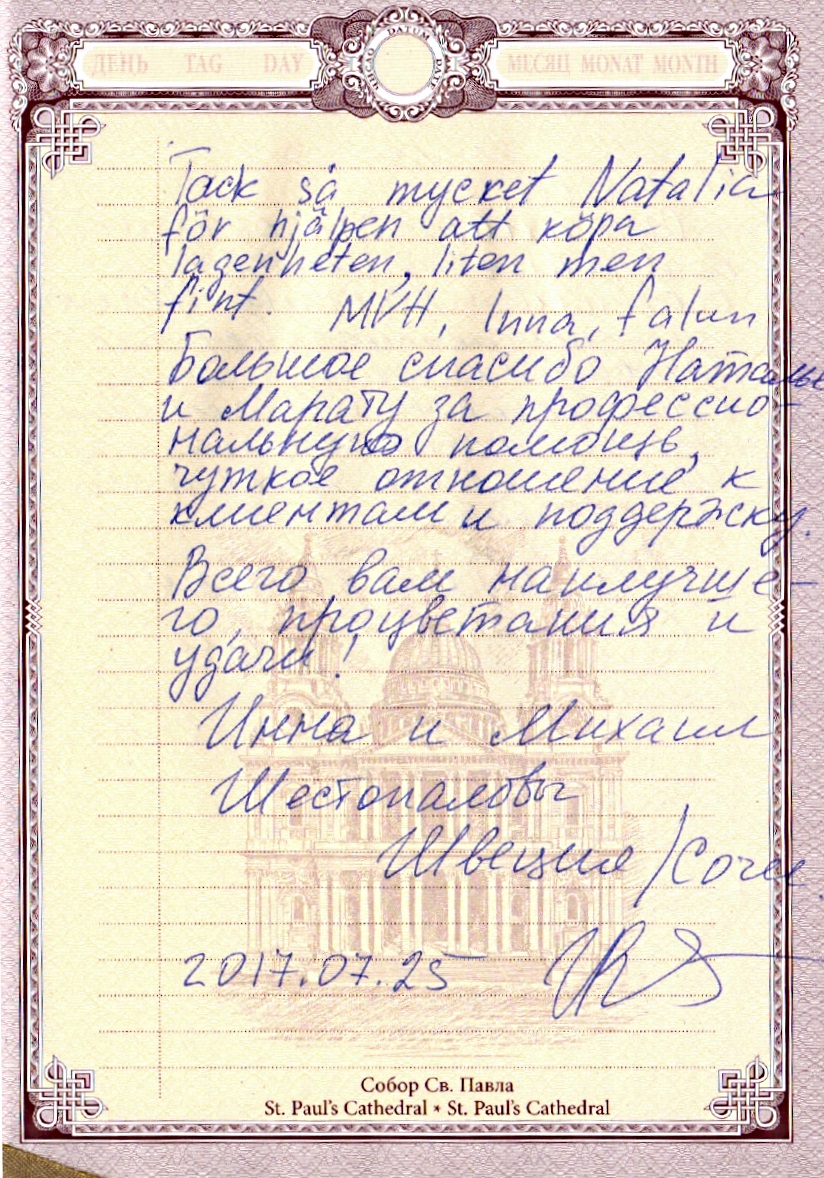 ДЕНЬ TAG DAY
ЧИСЛО DATUM DATE
МЕСЯЦ MONAT MONTH
Tack så mycket Natalia
för hjälpen att köpa
lagenheten, liten men
fint. MVH, Inna, falun
Большое спасибо Наталье
и Марату за профессио-
нальную помощь,
чуткое отношение к
клиентам и поддержку.
Всего вам наилучше-
го, процветания и
удачи!
Инна и Михаил
Шестопаловы
Швеция / Сочи.
2017.07.25
Собор Св. Павла
St. Paul's Cathedral * St. Paul's Cathedral